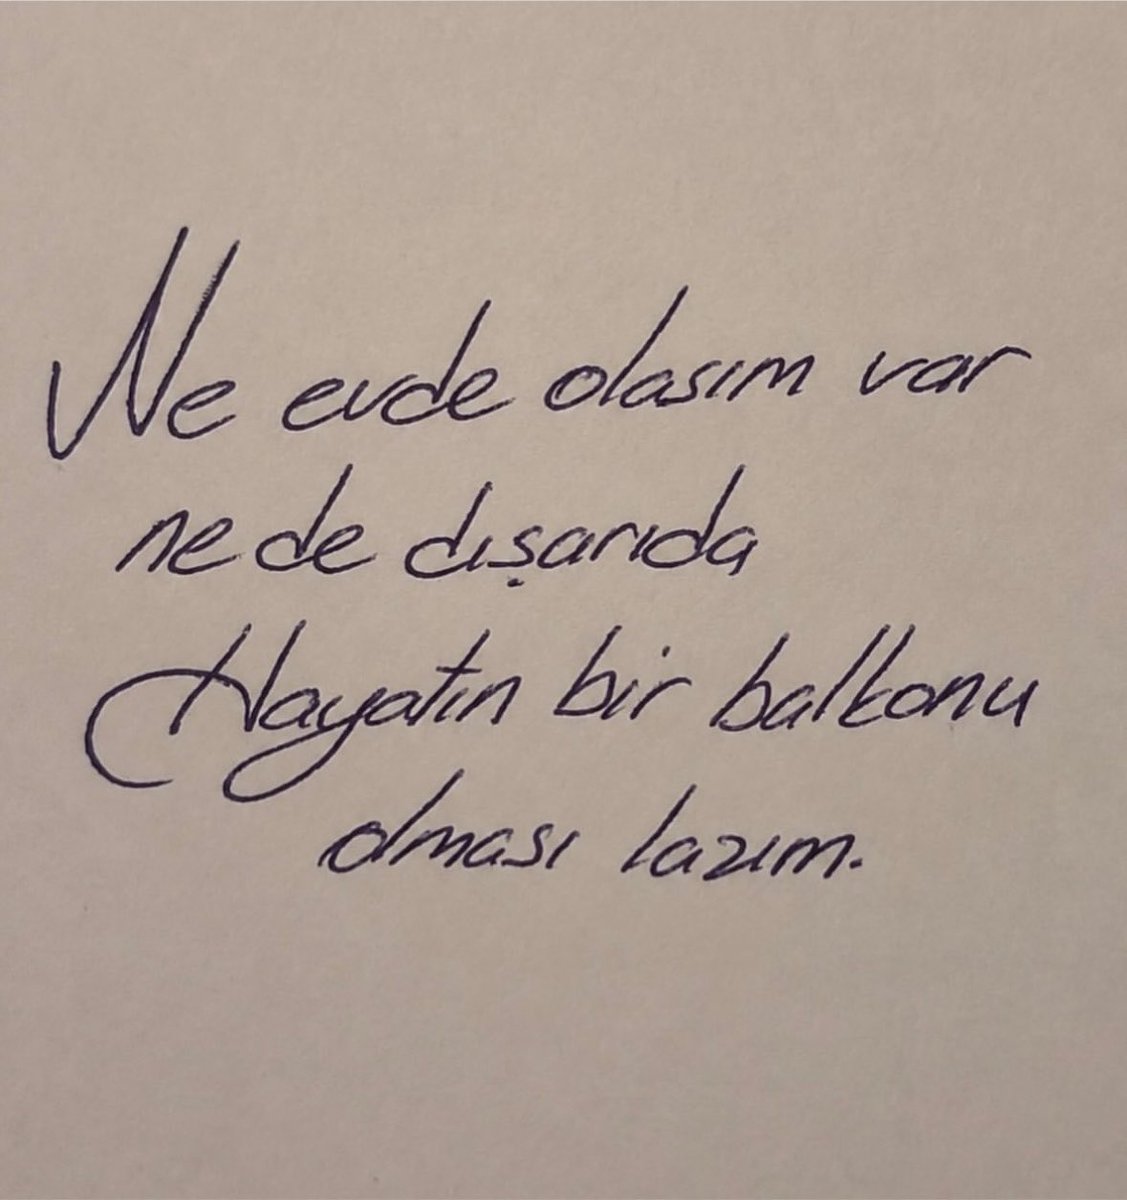 Ne evde olasım var
ne de dışarıda
Hayatın bir balkonu
olması lazım.